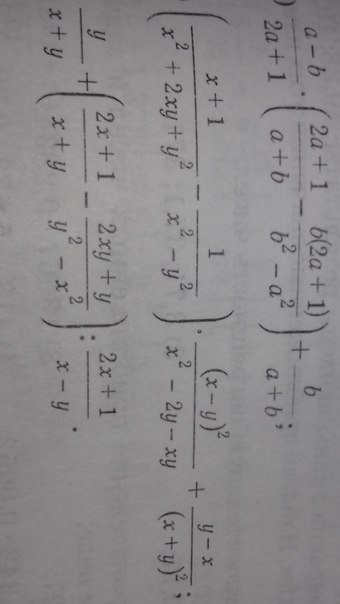 ) \frac{a-b}{2a+1} \cdot \left( \frac{2a+1}{a+b} - \frac{b(2a+1)}{b^2-a^2} \right) + \frac{b}{a+b};
\left( \frac{x+1}{x^2+2xy+y^2} - \frac{1}{x^2-y^2} \right) \cdot \frac{(x-y)^2}{x^2-2y-xy} + \frac{y-x}{(x+y)^2};
\frac{y}{x+y} + \left( \frac{2x+1}{x+y} - \frac{2xy+y}{y^2-x^2} \right) : \frac{2x+1}{x-y}.